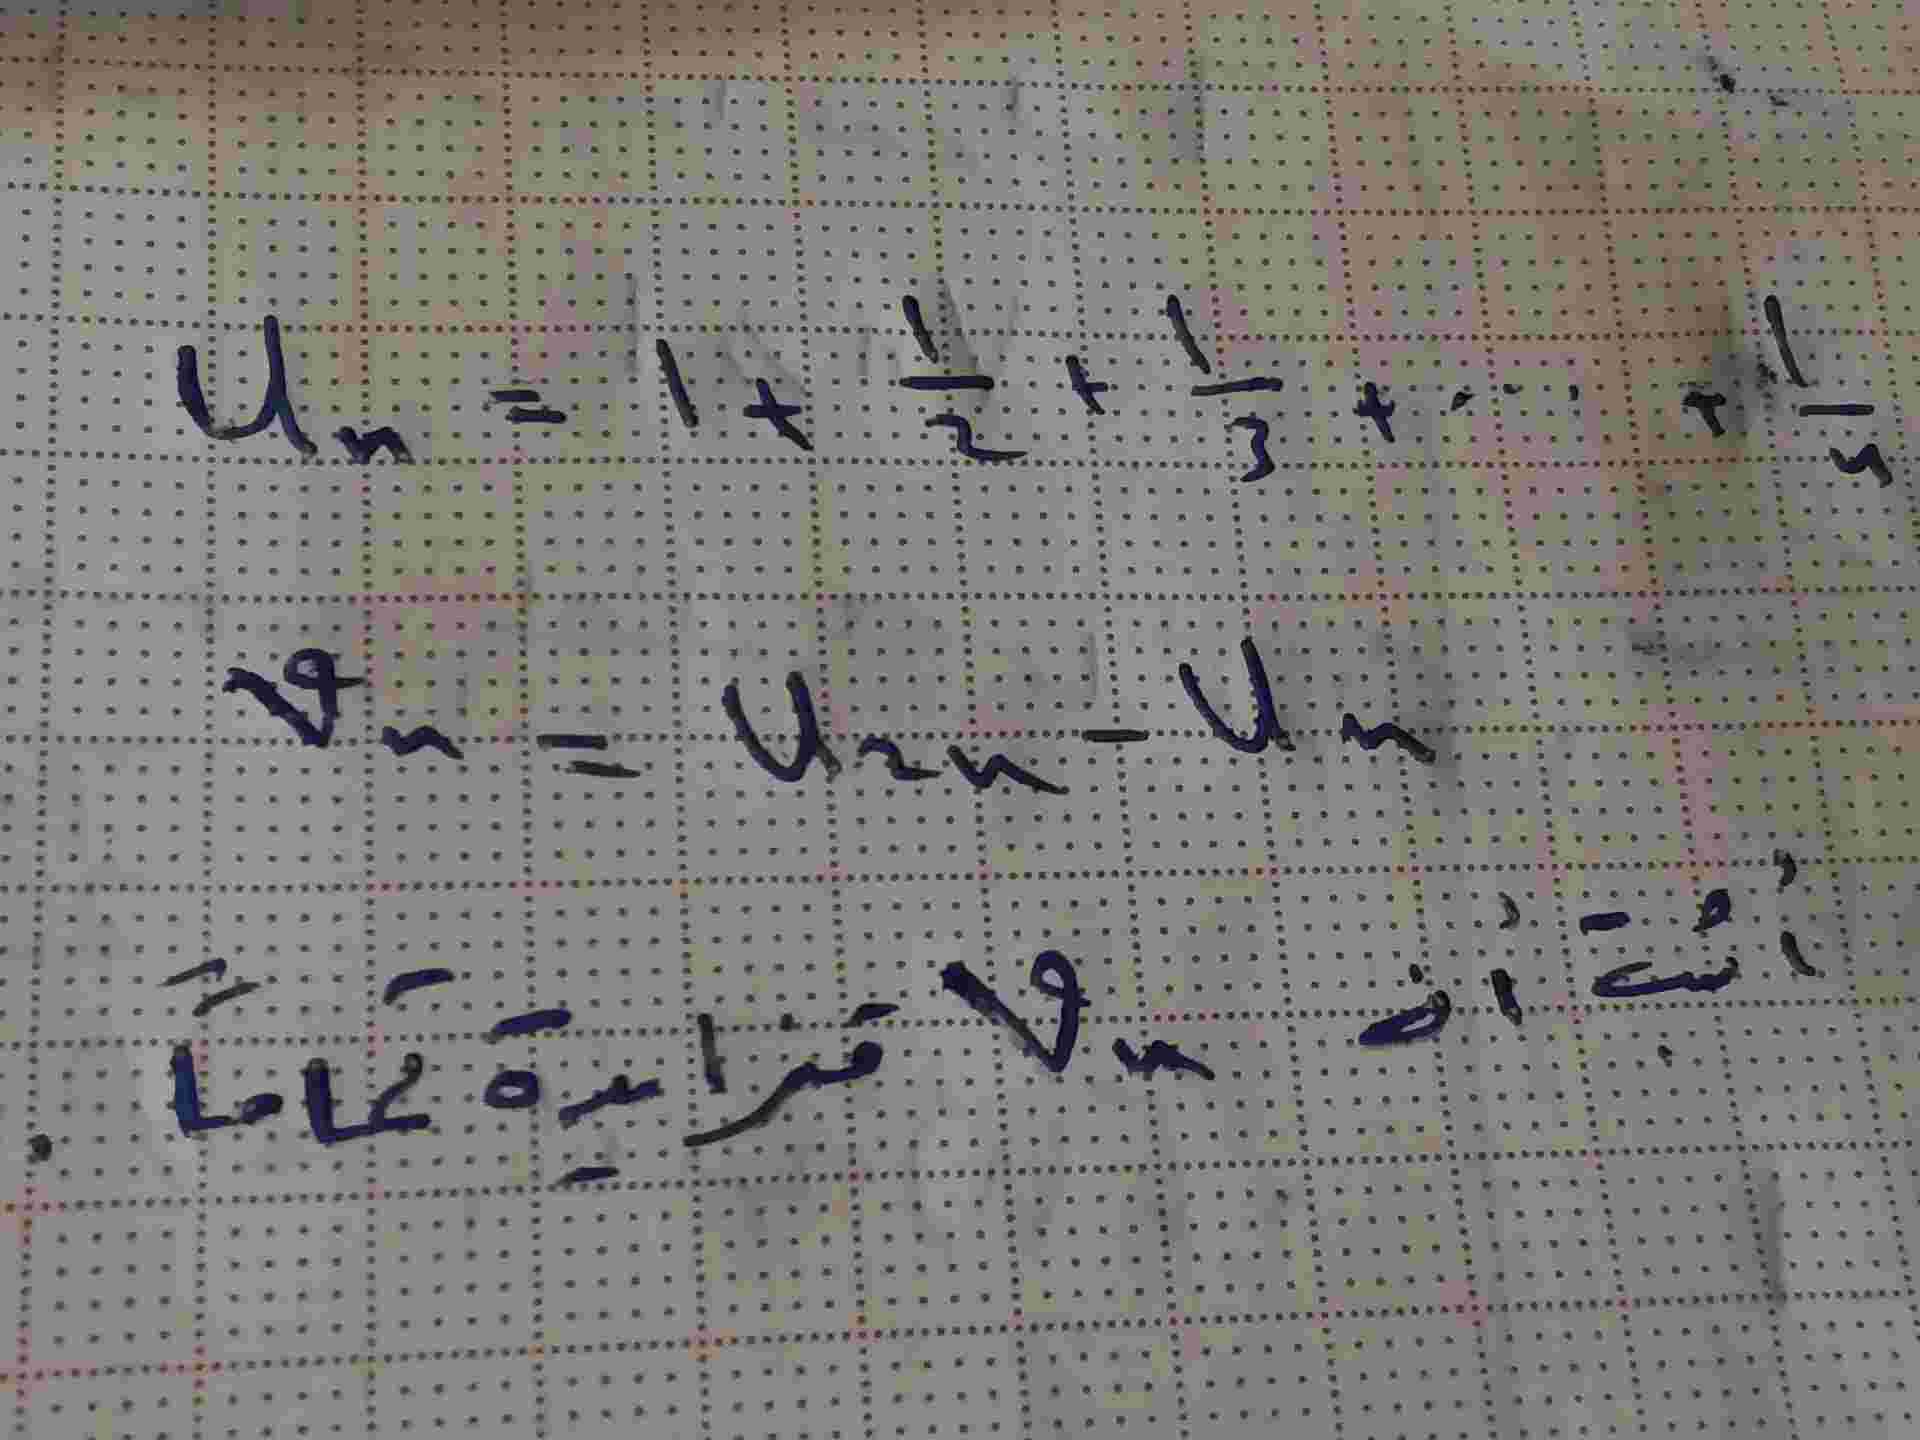 Uₙ = 1 + 1/2 + 1/3 + ... + 1/n
vₙ = U₂ₙ - Uₙ
أثبت أن vₙ متزايدة تماما .